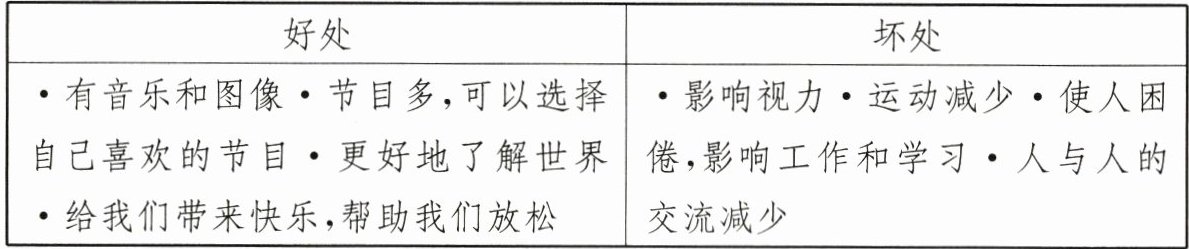 好处
坏处
·有音乐和图像·节目多,可以选择
自己喜欢的节目·更好地了解世界
·给我们带来快乐,帮助我们放松
·影响视力·运动减少·使人困
倦,影响工作和学习·人与人的
交流减少